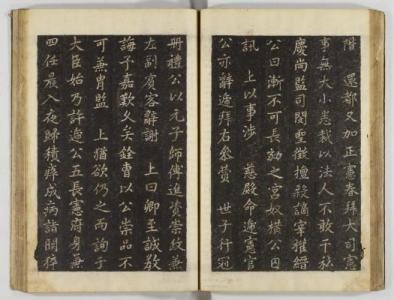 階 還都又加正憲春拜大司憲
事無大小悉裁以法人不敢干私
慶尚監司閔聖徽擅殺謫宰雅縉
公曰漸不可長劾之宮奴橫公囚
訊 上以事涉 慈殿命遞憲官
公亦辭遞拜右參贊 世子行冠
冊禮公以元子師傅進資崇政兼
左副賓客辭謝 上曰卿至誠教
誨予嘉歎久矣銓曹以公崇品不
可兼胄監 上猶欲仍之而詢于
大臣始乃許遞公五長憲府身兼
四任晨入夜歸積瘁成病諸閑